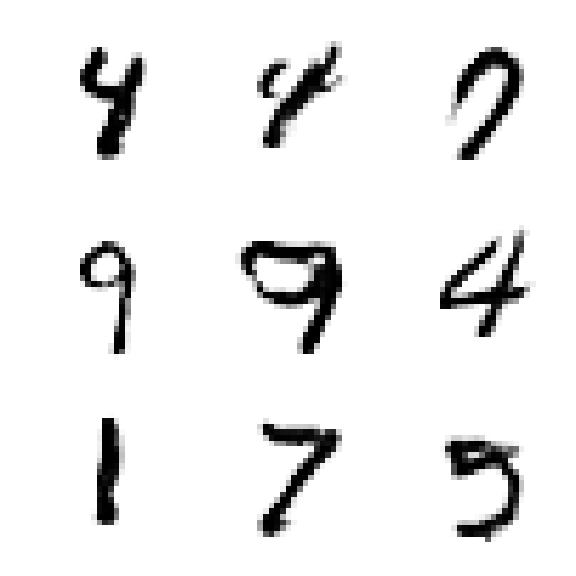 4 4 7
9 9 4
1 7 5